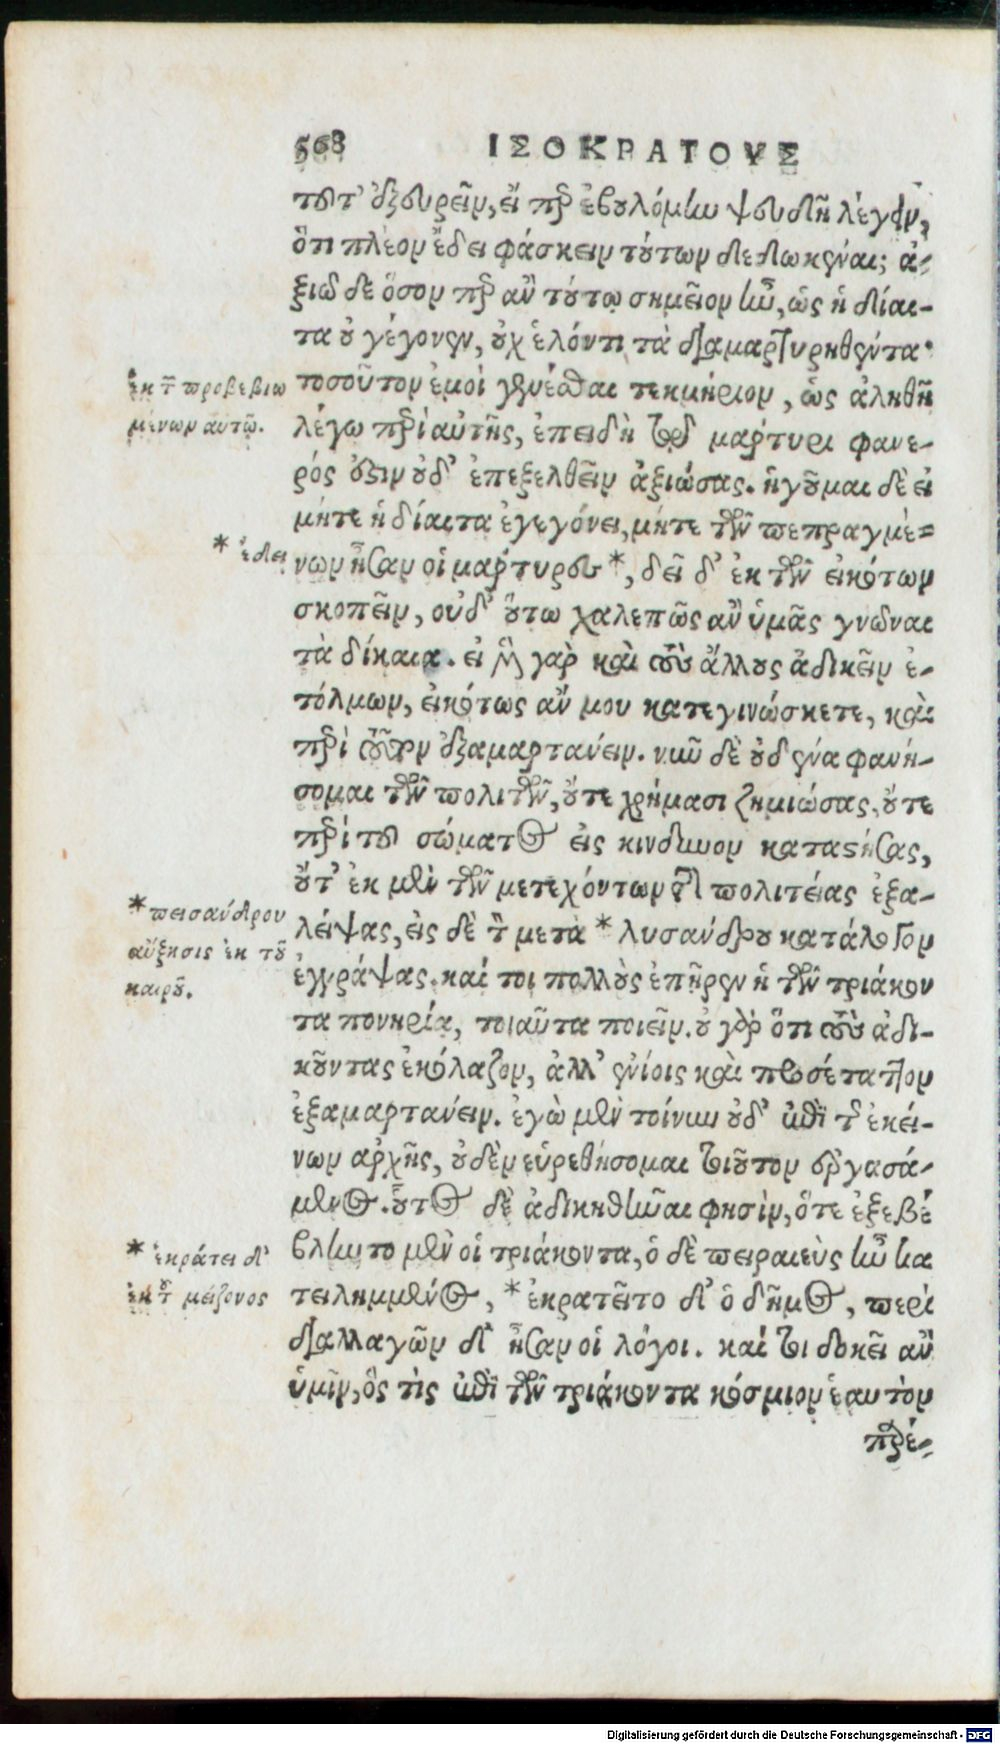 568 ΙΣΟΚΡΑΤΟΥΣ
τοῦτ' ἐξευρεῖν, εἴ περ ἐβουλόμην ψευδῆ λέγειν,
ὅτι πλέον ἔδει φάσκειν τούτων δεδωκέναι; ἀ-
ξιῶ δὲ ὅσον περ ἂν τούτῳ σημεῖον ἦν, ὡς ἡ δίαι-
τα οὐ γέγονεν, οὐχ ἑλόντι τὰ διαμαρτυρηθέντα·
τοσοῦτον ἐμοὶ γενέσθαι τεκμήριον, ὡς ἀληθῆ
λέγω περὶ αὐτῆς, ἐπειδὴ τῷ μάρτυρι φανε-
ρός ἐστιν οὐδ' ἐπεξελθεῖν ἀξιώσας. ἡγοῦμαι δὲ εἰ
μήτε ἡ δίαιτα ἐγεγόνει, μήτε τῶν πεπραγμέ-
νων ἦσαν οἱ μάρτυρες *, δεῖ δ' ἐκ τῶν εἰκότων
σκοπεῖν, οὐδ' οὕτω χαλεπῶς ἂν ὑμᾶς γνῶναι
τὰ δίκαια. εἰ μὲν γὰρ καὶ τοὺς ἄλλους ἀδικεῖν ἐ-
τόλμων, εἰκότως ἄν μου κατεγινώσκετε, καὶ
περὶ τοῦτον ἐξαμαρτανειν. νῦν δὲ οὐδένα φανή-
σομαι τῶν πολιτῶν, οὔτε χρήμασι ζημιώσας, οὔτε
περὶ τοῦ σώματος εἰς κίνδυνον καταστήσας,
οὔτ' ἐκ μὲν τῶν μετεχόντων τῆς πολιτείας ἐξα-
λείψας, εἰς δὲ τὸν μετὰ * λυσάνδρου κατάλογον
ἐγγράψας. καί τοι πολλοὺς ἐπῆρεν ἡ τῶν τριάκον
τα πονηρία, τοιαῦτα ποιεῖν. οὐ γὰρ ὅτι τοὺς ἀδι-
κοῦντας ἐκόλαζον, ἀλλ' ἐνίοις καὶ προσέταττον
ἐξαμαρτάνειν. ἐγὼ μὲν τοίνυν οὐδ' ἐπὶ τῆς ἐκεί-
νων ἀρχῆς, οὐδὲν εὑρεθήσομαι τοιοῦτον ἐργασά-
μενος. οὗτος δὲ ἀδικηθῆναι φησὶν, ὅτε ἐξεβέ
βληντο μὲν οἱ τριάκοντα, ὁ δὲ πειραιεὺς ἦν κα
τειλημμένος, * ἐκρατεῖτο δ' ὁ δῆμος, περὶ
διαλλαγῶν δ' ἦσαν οἱ λόγοι. καί τοι δοκεῖ ἂν
ὑμῖν, ὅς τις ἐπὶ τῶν τριάκοντα κόσμιον ἑαυτὸν
παρέ-
ἐκ τῶν προβεβιω
μένων αὐτῷ.
* ἔδει
* πεισάνδρου
αὔξησις ἐκ τοῦ
καιροῦ.
* ἐκράτει δ'
ἐκ τοῦ μείζονος
Digitalisierung gefördert durch die Deutsche Forschungsgemeinschaft - DFG